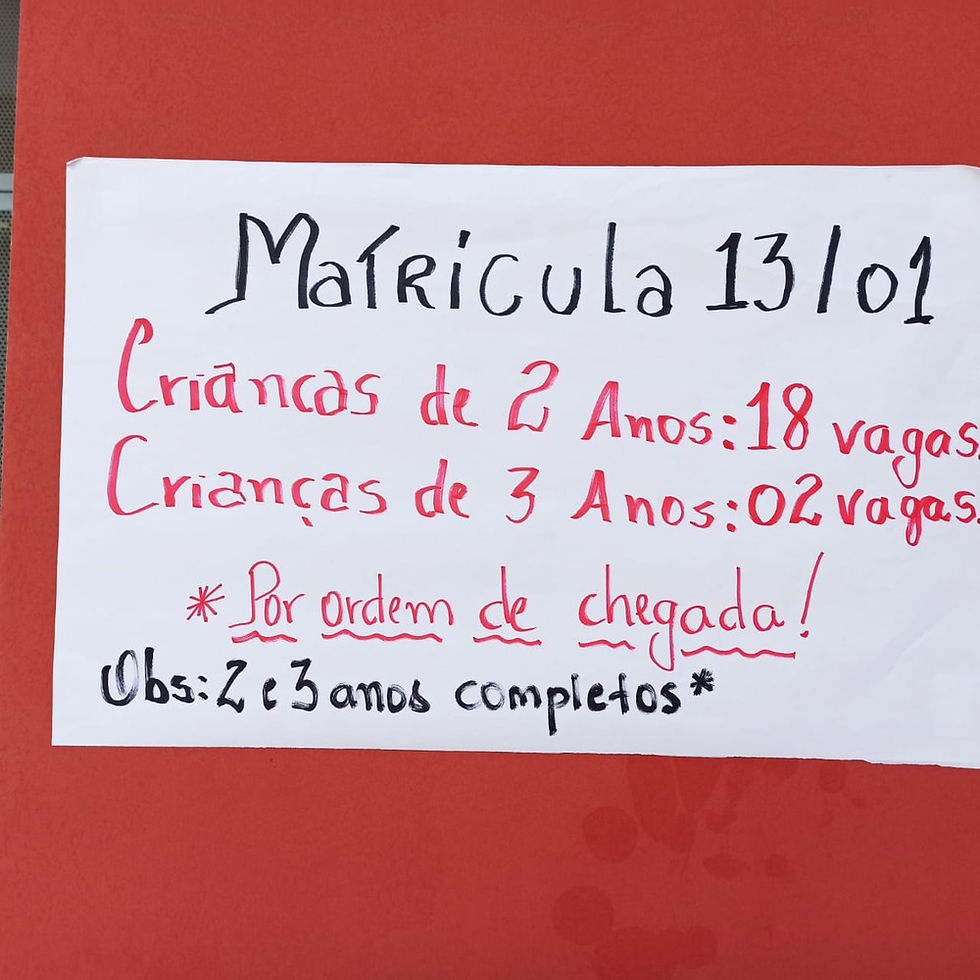 Matrícula 13/01
Criancas de 2 Anos:18 vagas.
Crianças de 3 Anos:02 vagas.
* Por ordem de chegada!
Obs:2 e 3 anos completos*